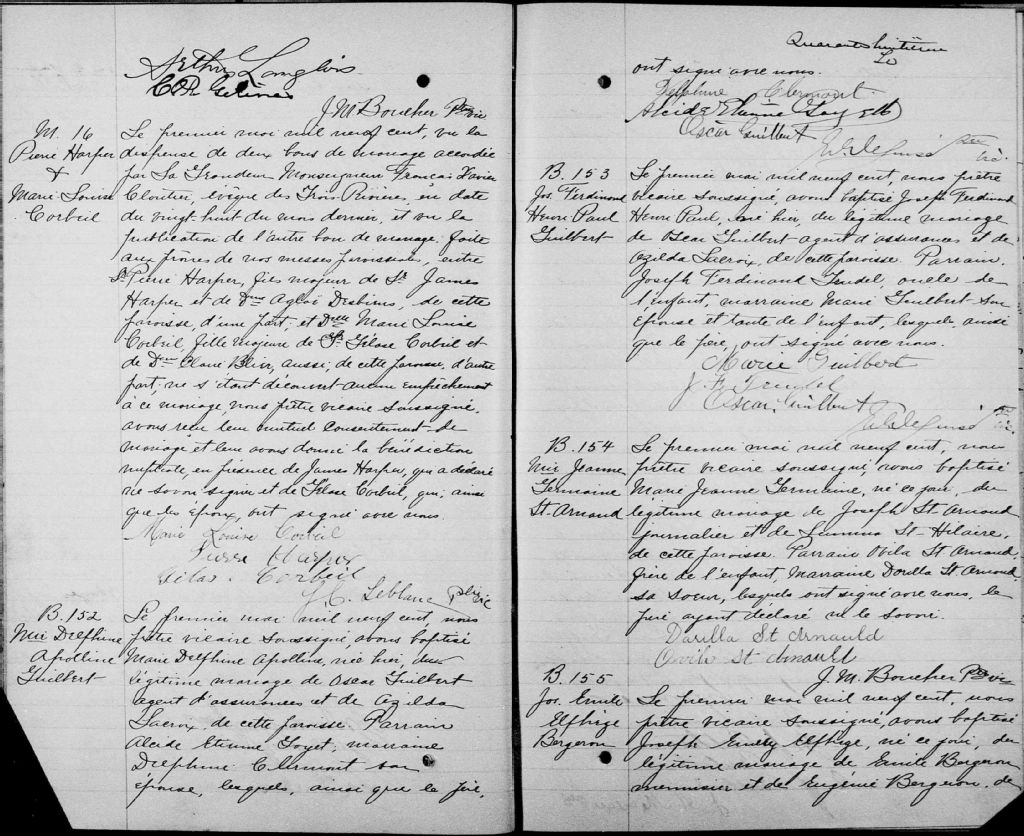 Arthur Langlois
J. M. Boucher Ptre vic
M. 16
Pierre Harper
&
Marie Louise
Corbeil
Le premier mai mil neuf cent, vu la
dispense de deux bans de mariage accordée
par Sa Grandeur Monseigneur François Xavier
Cloutier, évêque des Trois Rivières, en date
du vingt huit du mois dernier, et vu la
publication de l'autre ban de mariage, faite
aux prônes de nos messes paroissiales, entre
Sr Pierre Harper, fils majeur de Sr James
Harper et de Dme Aglaé Desbiens, de cette
paroisse, d'une part; et Delle Marie Louise
Corbeil fille majeure de Sr Gelase Corbeil et
de Dme Claire Blin, aussi, de cette paroisse, d'autre
part; ne s'étant découvert aucun empêchement
à ce mariage, nous prêtre vicaire soussigné,
avons reçu leur mutuel consentement de
mariage et leur avons donné la bénédiction
nuptiale, en présence de James Harper, qui a déclaré
ne savoir signer et de Gelase Corbeil, qui, ainsi
que les époux, ont signé avec nous.
Marie Louise Corbeil
Pierre Harper
Gélas Corbeil
J. C. Leblanc ptre vic
B. 152
Mie Delphine
Apolline
Guilbert
Le premier mai mil neuf cent, nous
prêtre vicaire soussigné, avons baptisé
Marie Delphine Apolline, née hier, du
légitime mariage de Oscar Guilbert
agent d'assurances et de Azilda
Lacroix, de cette paroisse. Parrain
Alcide Etienne Goyet, marraine
Delphine Clermont son
épouse, lesquels, ainsi que le père,
Quarante huitième
ont signé avec nous.
Delphine Clermont
Alcide Etienne Goyette
Oscar Guilbert
ptre vic.
B. 153
Jos. Ferdinand
Henri Paul
Guilbert
Le premier mai mil neuf cent, nous prêtre
vicaire soussigné, avons baptisé Joseph Ferdinand
Henri Paul, né hier, du légitime mariage
de Oscar Guilbert agent d'assurances et de
Azilda Lacroix, de cette paroisse. Parrain
Joseph Ferdinand Trudel, oncle de
l'enfant, marraine Marie Guilbert son
épouse et tante de l'enfant, lesquels, ainsi
que le père, ont signé avec nous.
Marie Guilbert
J. F. Trudel
Oscar Guilbert
ptre vic.
B. 154
Mie Jeanne
Germaine
St. Arnaud
Le premier mai mil neuf cent, nous
prêtre vicaire soussigné, avons baptisé
Marie Jeanne Germaine, né ce jour, du
légitime mariage de Joseph St Arnaud
journalier et de Lumina St-Hilaire,
de cette paroisse. Parrain Ovila St Arnaud,
frère de l'enfant, Marraine Dorilla St Arnaud,
sa soeur, lesquels ont signé avec nous, le
père ayant déclaré ne le savoir.
Darilla St Arnauld
Ovila St Arnauld
J. M. Boucher Ptre vic
B. 155
Jos. Emile
Elphège
Bergeron
Le premier mai mil neuf cent, nous
prêtre vicaire soussigné, avons baptisé
Joseph Emile Elphège, né ce jour, du
légitime mariage de Emile Bergeron
menuisier et de Eugénie Bergeron, de